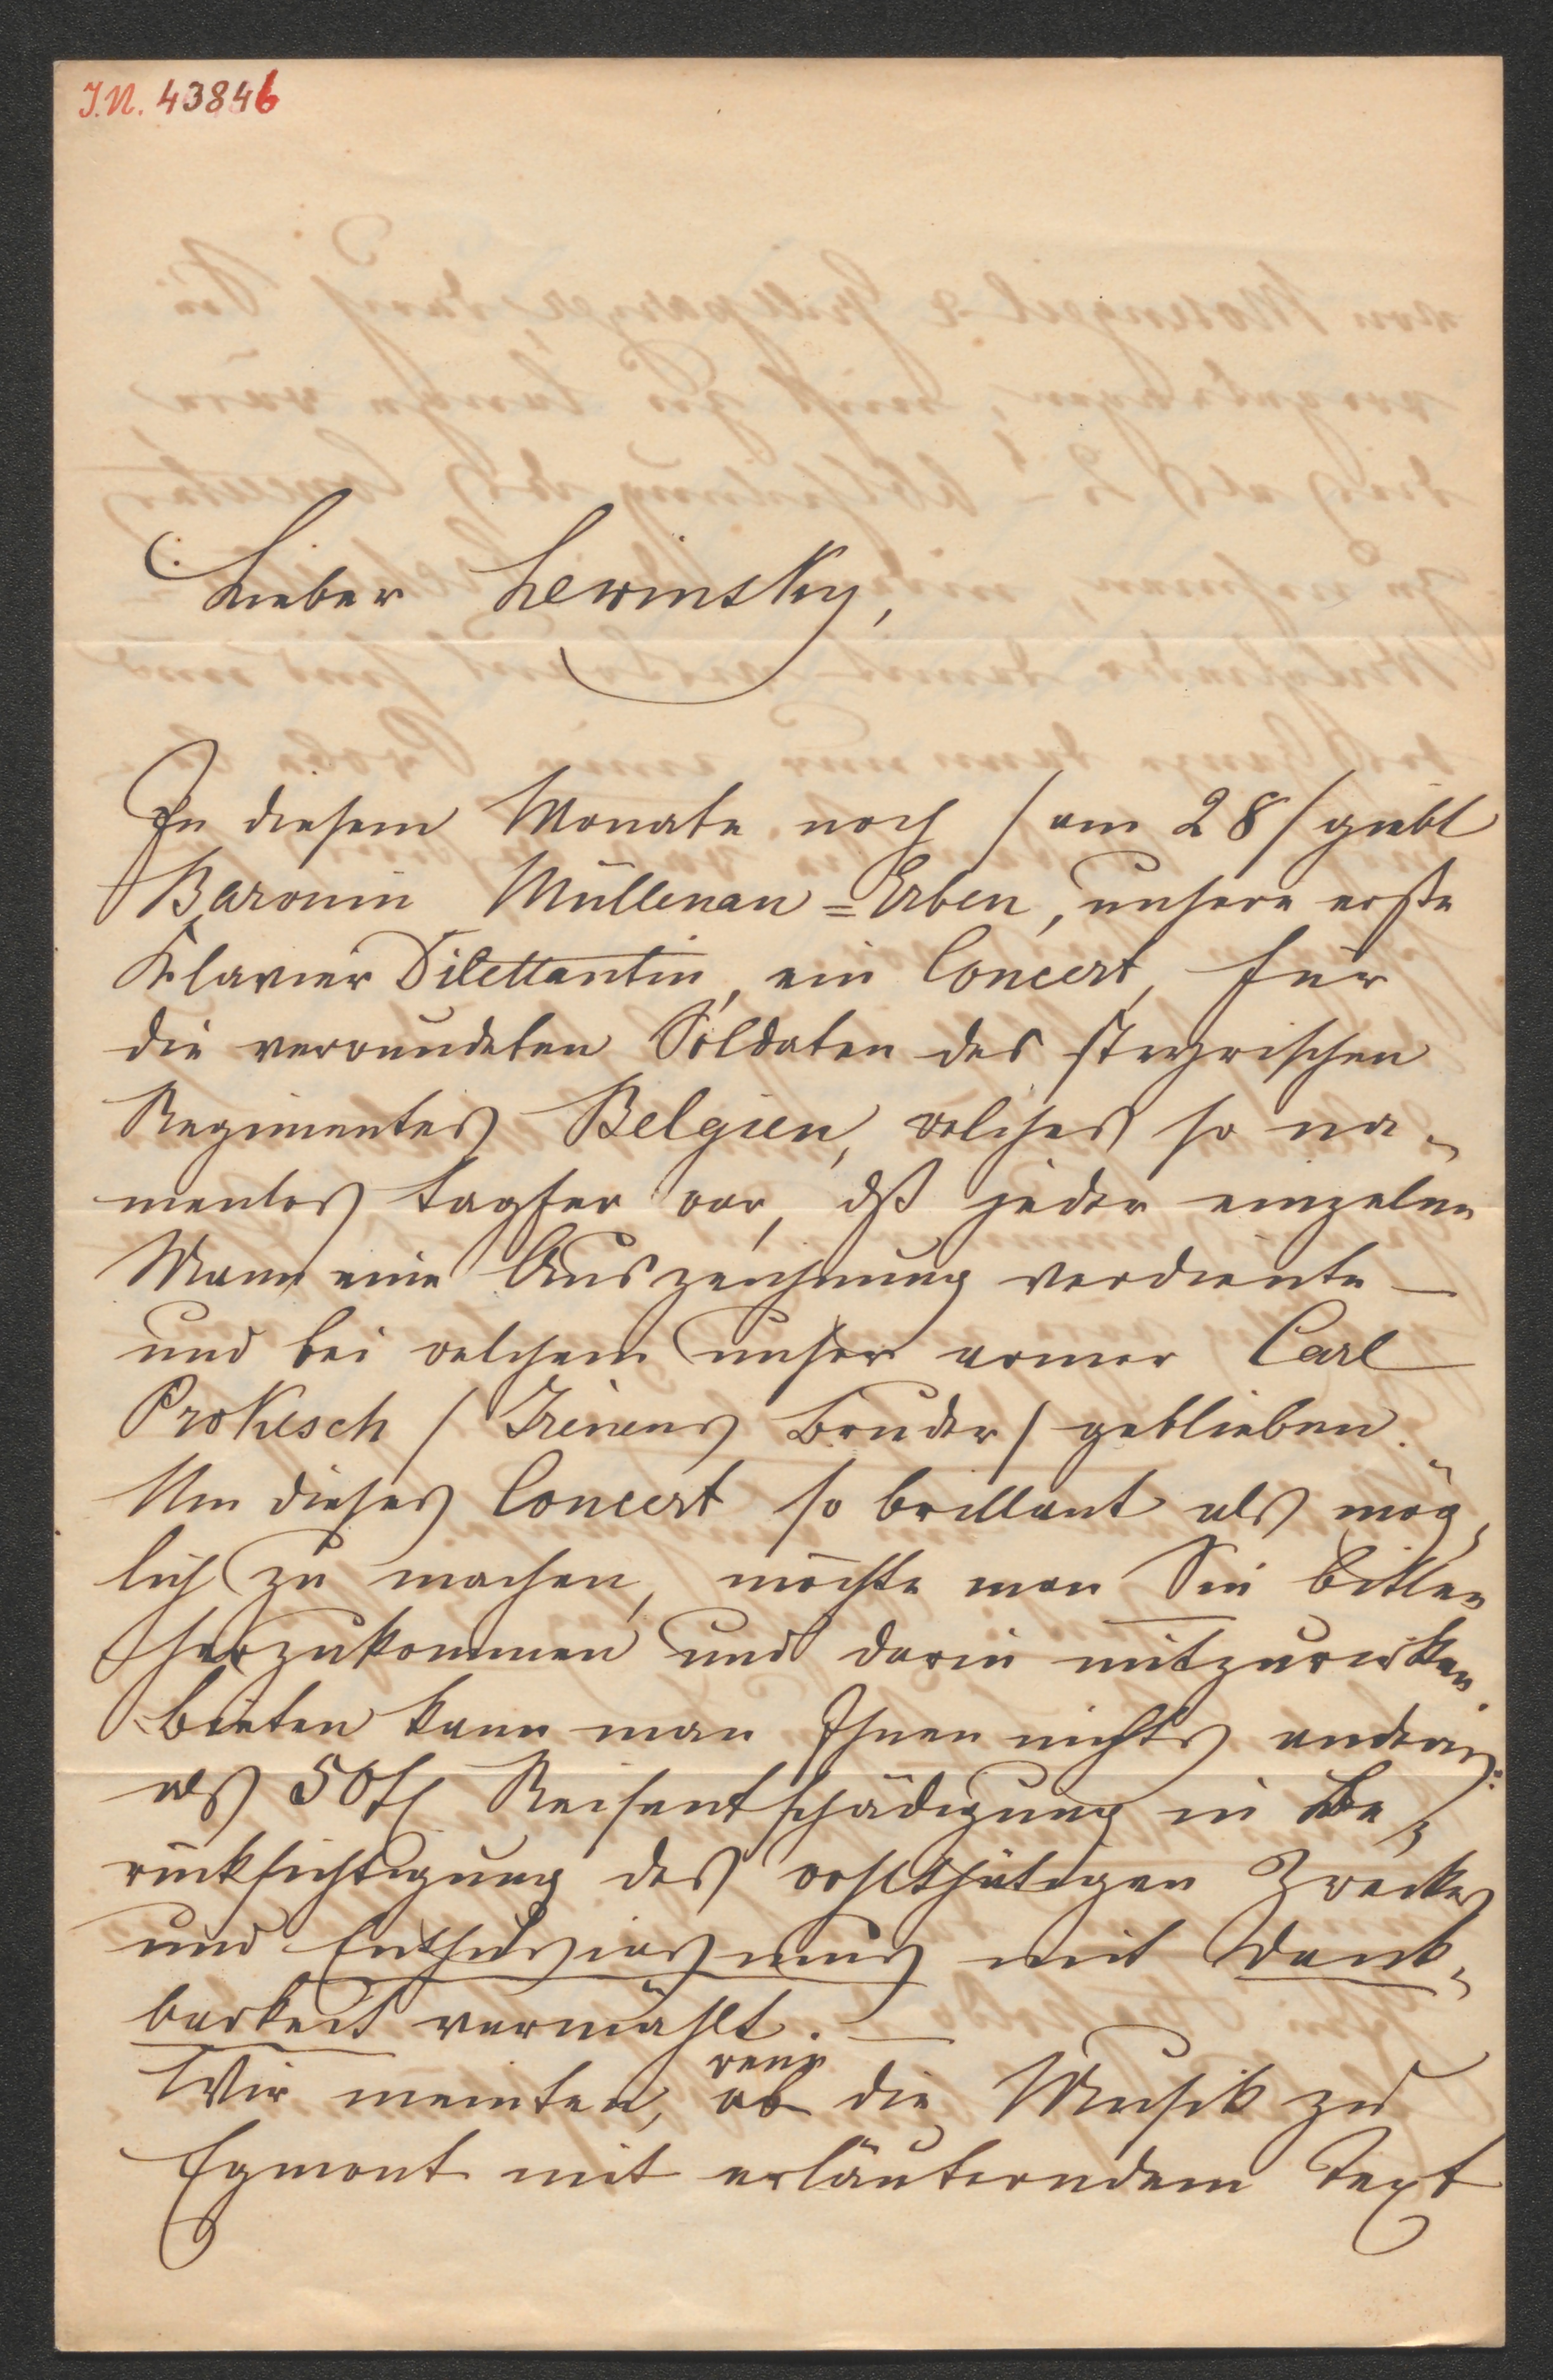 J.N. 43846
Lieber Lewinsky,
In diesem Monate noch /am 28/ giebt
Baronin Müllenau=Erben, unsere erste
Klavier Dilettantin, ein Concert, für
die verwundeten Soldaten des steyrischen
Regimentes Belgien, welches so na-
menlos tapfer war, dß jeder einzelne
Mann eine Auszeichnung verdiente –
und bei welchem unser armer Carl
Prokesch / Irenens Bruder / geblieben.
Um dieses Concert so brillant als mög-
lich zu machen, möchte man Sie bitten
herzukommen und darin mitzuwirken.
bieten kann man Ihnen nichts anderes
als 50 fl Reisentschädigung in Be-
rücksichtigung des wohlthätigen Zweckes
und Enthusiasmus mit Dank-
barkeit vermählt. –
wenn
Wir meinten, ob die Musik zu
Egmont mit erläuterndem Text